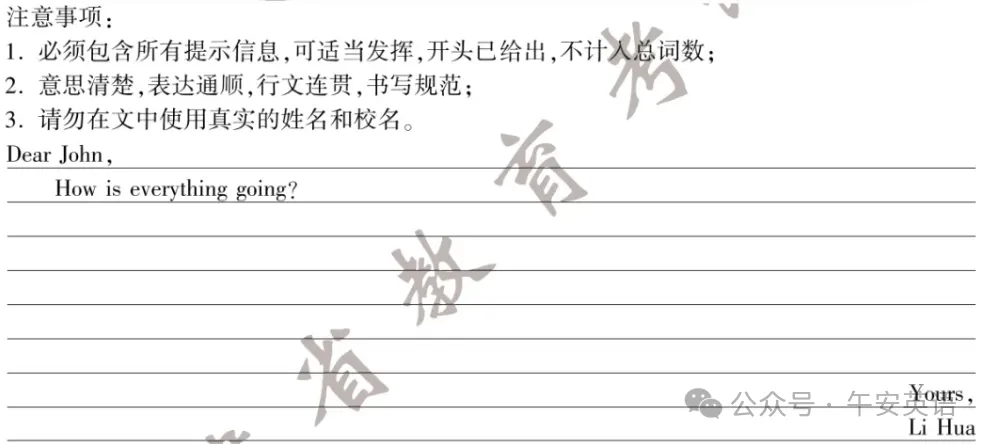 注意事项:
1. 必须包含所有提示信息,可适当发挥,开头已给出,不计入总词数;
2. 意思清楚,表达通顺,行文连贯,书写规范;
3. 请勿在文中使用真实的姓名和校名。
Dear John,
How is everything going?
Yours,
Li Hua
省教育考
公众号·午安英语